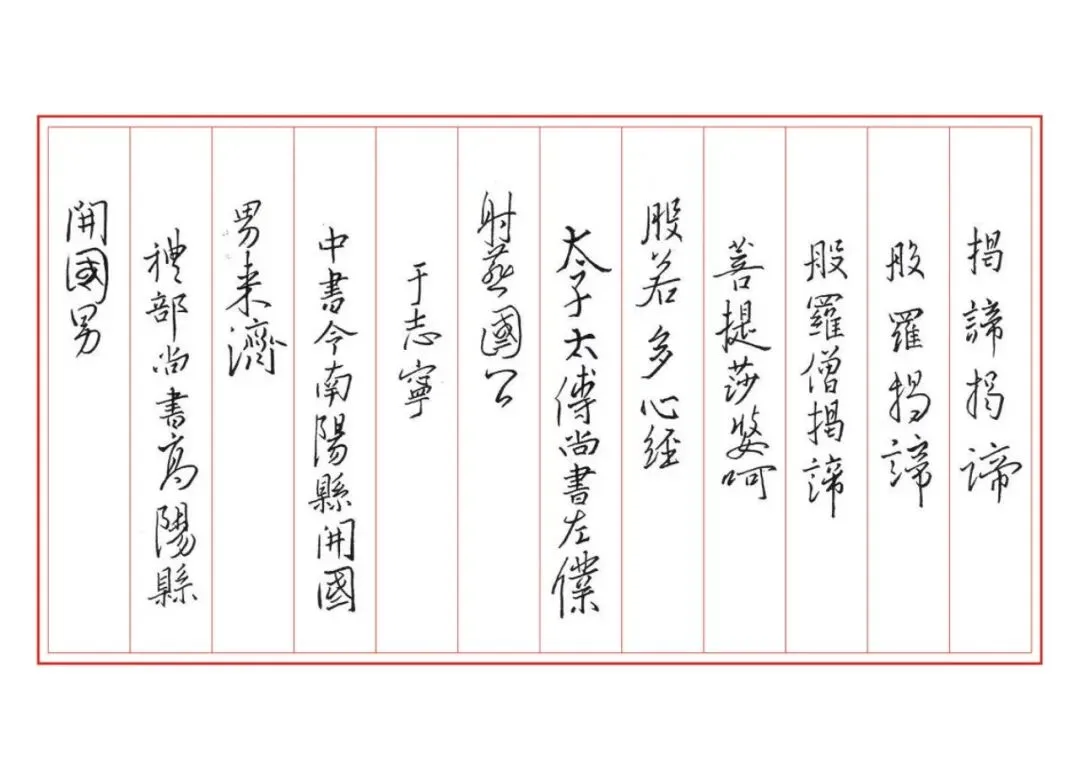 揭諦揭諦
般羅揭諦
般羅僧揭諦
菩提莎婆呵
般若多心經
太子太傅尚書左僕
射燕國公
于志寧
中書令南陽縣開國
男来濟
禮部尚書高陽縣
開國男